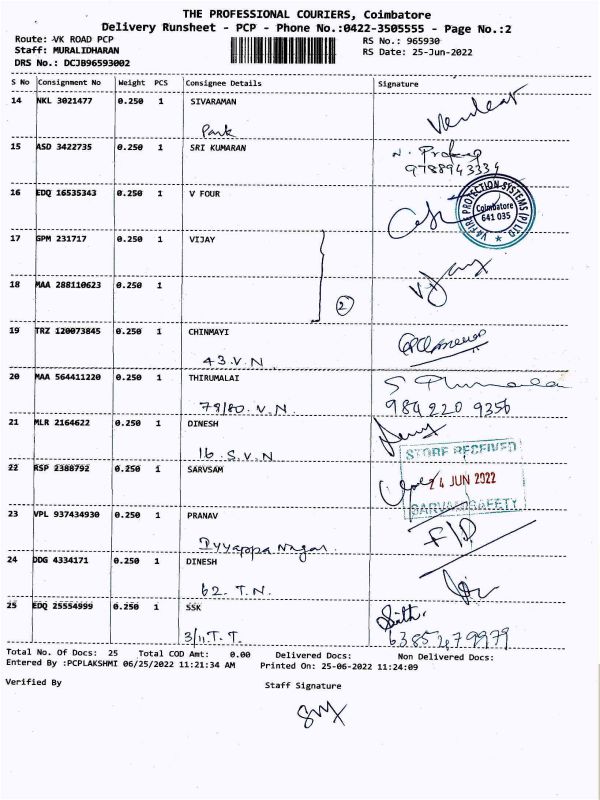 THE PROFESSIONAL COURIERS, Coimbatore
Delivery Runsheet - PCP - Phone No.:0422-3505555 - Page No.:2
Route: VK ROAD PCP RS No.: 965930
Staff: MURALIDHARAN RS Date: 25-Jun-2022
DRS No.: DCJB96593002
S No Consignment No Weight PCS Consignee Details Signature
14 NKL 3021477 0.250 1 SIVARAMAN
Park
15 ASD 3422735 0.250 1 SRI KUMARAN
9788943334
16 EDQ 16535343 0.250 1 V FOUR
V4 FIRE PROTECTION SYSTEMS (P) LTD
Coimbatore
641 035
17 GPM 231717 0.250 1 VIJAY
18 MAA 288110623 0.250 1
2
19 TRZ 120073845 0.250 1 CHINMAYI
43.V.N
20 MAA 564411220 0.250 1 THIRUMALAI
79/80.V.N.
984 220 9356
21 MLR 2164622 0.250 1 DINESH
16.S.V.N
STORE RECEIVED
22 RSP 2388792 0.250 1 SARVSAM
24 JUN 2022
SAFETY
23 VPL 937434930 0.250 1 PRANAV
Iyyappa Nagar.
24 DDG 4334171 0.250 1 DINESH
62. T.N.
25 EDQ 25554999 0.250 1 SSK
3/11.T.T.
Total No. Of Docs: 25 Total COD Amt: 0.00 Delivered Docs: Non Delivered Docs:
Entered By :PCPLAKSHMI 06/25/2022 11:21:34 AM Printed On: 25-06-2022 11:24:09
Verified By Staff Signature